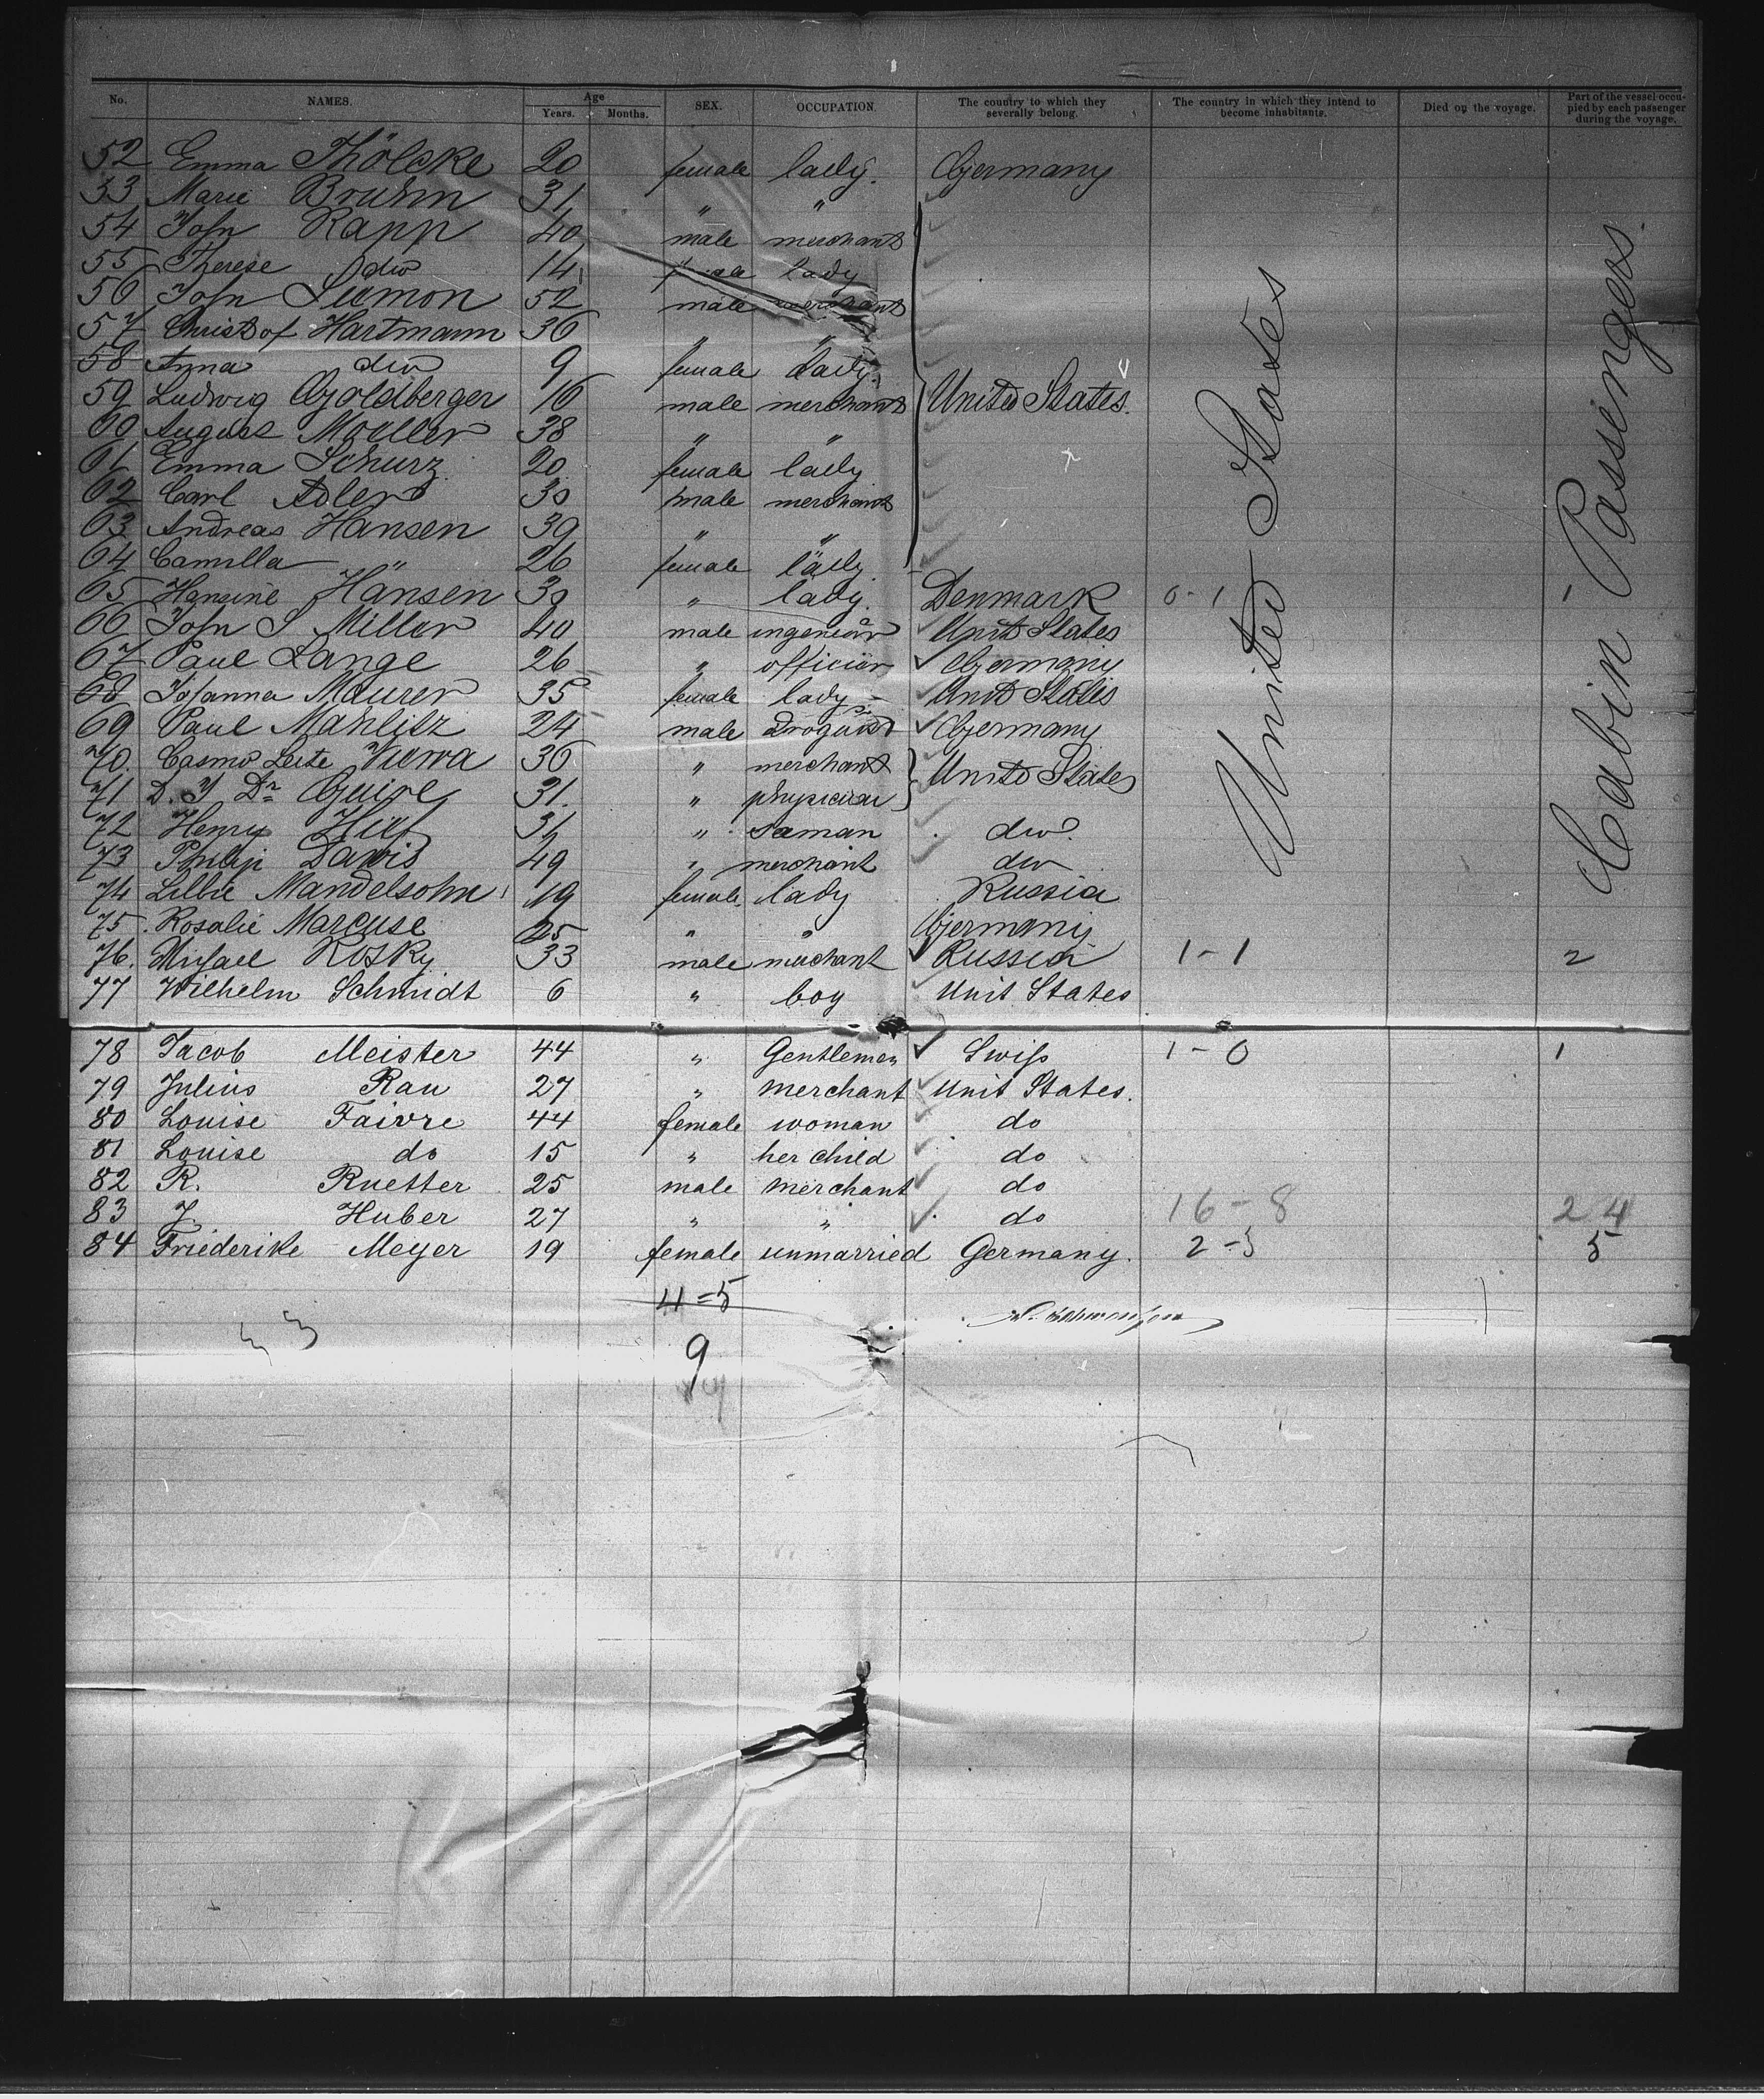 No. NAMES. Age Years. Months. SEX. OCCUPATION. The country to which they severally belong. The country in which they intend to become inhabitants. Died on the voyage. Part of the vessel occupied by each passenger during the voyage.
52 Emma Thölcke 20 female lady. Germany
53 Marie Bruhm 31 " "
54 John Rapp 40 male merchant
55 Therese do 14 female lady
56 John 52 male merchant
57 Christof Hartmann 36 " "
58 Anna do 9 female lady.
59 Ludwig Goldberger 16 male merchant United States.
60 August Moeller 38 " "
61 Emma Schurz 20 female lady
62 Carl Adler 30 male merchant
63 Andreas Hansen 39 " "
64 Camilla " 26 female lady.
65 Hansine Hansen 39 " lady. Denmark 0-1 1
66 John S Miller 40 male ingenieur Unit States
67 Paul Lange 26 " officier Germany
68 Johanna Maurer 35 female lady Unit States
69 Paul Mahlitz 24 male droguist Germany
70. Casmo Leite 36 " merchant United States
71 D. Y Dr Guire 31. " physician
72 Henry 36 " seaman do.
73 Philip Davis 49 " merchant do
74 Lillie Mandelsohn 19 female. lady Russia
75. Rosalie Marcuse 25 " " Germany
76. Michael Rosky 33 male merchant Russia 1-1 2
77 Wilhelm Schmidt 6 " boy Unit States
78 Jacob Meister 44 " Gentlemen Swiss 1-0 1
79 Julius Rau 27 " merchant Unit States.
80 Louise Faivre 44 female woman do
81 Louise do 15 " her child do
82 R. Ruetter 25 male merchant do
83 J. Huber 27 " " do 16-8 24
84 Friederike Meyer 19 female unmarried Germany. 2-3 5
4=5
9
United States
Cabin Passengers.